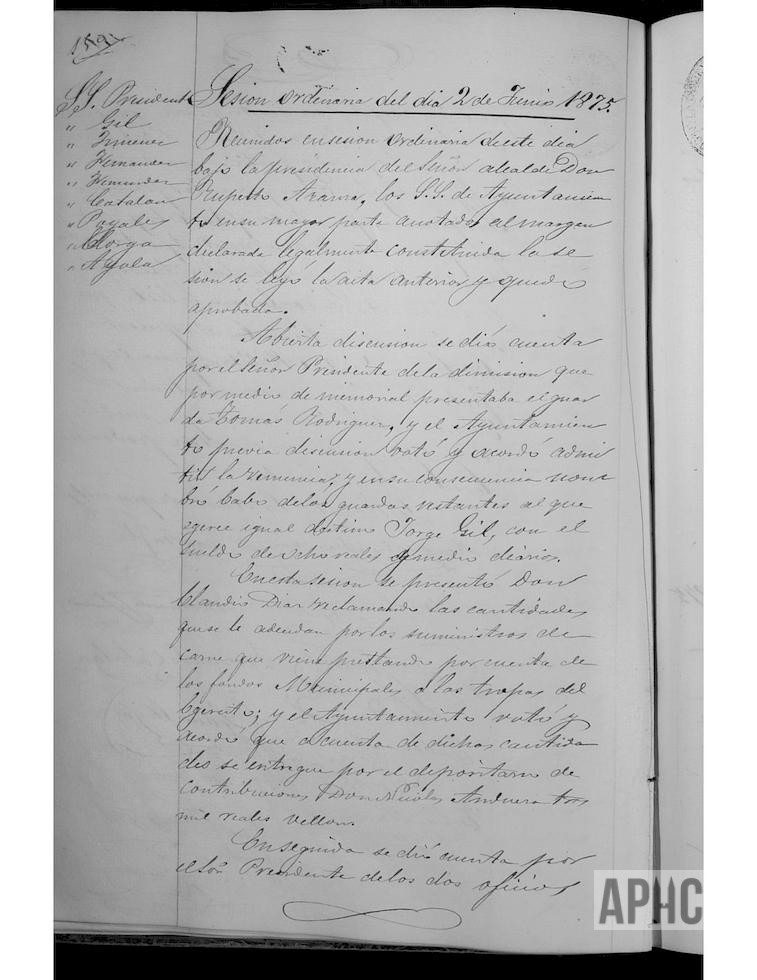 159
SS. Presidente
" Gil
" Jimenez
" Fernandez
" Fernandez
" Catalan
" Poyales
" Clorga
" Ayala
Sesion ordinaria del dia 2 de Junio 1875.
Reunidos en sesion ordinaria de este dia
bajo la presidencia del Señor alcalde Don
Ruperto los S.S. de Ayuntamien
to en su mayor parte anotados al margen
declarada legalmente constituida la se
sion se leyó la acta anterior y quedó
aprobada.
Abierta discusion se dió cuenta
por el Señor Presidente de la dimision que
por medio de memorial presentaba el guar
da Tomás Rodriguez, y el Ayuntamien
to previa discusion votó y acordó admi
tir la renuncia, y en su consecuencia nom
bró Cabo de los guardas restantes al que
egerce igual destino Jorge Gil, con el
sueldo de ocho reales y medio diarios.
En esta sesion se presentó Don
Claudio Diaz reclamando las cantidades
que se le adeudan por los suministros de
carne que viene prestando por cuenta de
los fondos Municipales a las tropas del
Egercito; y el Ayuntamiento votó y
acordó que a cuenta de dichas cantida
des se entregue por el depositario de
contribuciones Don Nicolas Anduera tres
mil reales vellon.
En seguida se dió cuenta por
el Sor. Presidente de los dos oficios
APHC